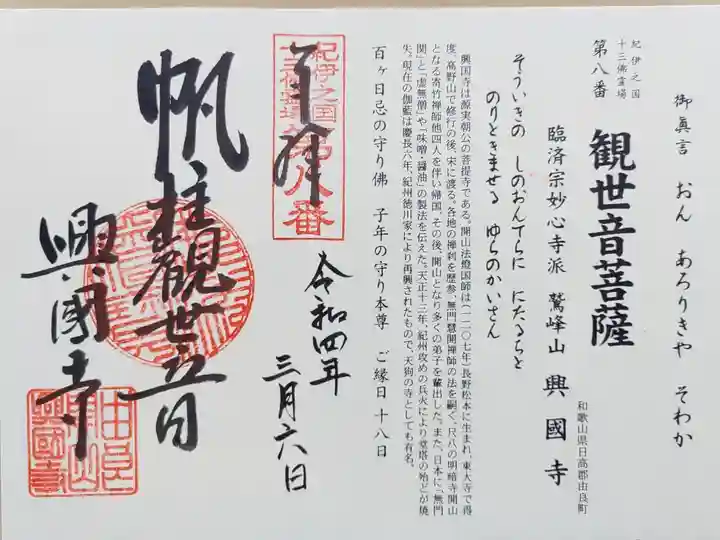 御眞言　おん　あろりきや　そわか
紀伊之国
十三佛霊場
第八番
観世音菩薩
臨済宗妙心寺派　鷲峰山　興國寺
和歌山県日高郡由良町
そういきの　しのおんてらに　にたるらと
のりときませる　ゆらのかいさん
興国寺は源実朝公の菩提寺である。開山法燈国師は(一二〇七年)長野松本に生まれ、東大寺で得
度、高野山で修行の後、宋に渡る。各地の禅刹を歴参、無門慧開禅師の法を嗣ぐ。尺八の明暗寺開山
となる寄竹禅師他四人を伴い帰国、その後、開山となり多くの弟子を輩出した。また、日本に「無門
関」と「虚無僧」や「味噌・醤油」の製法を伝えた。天正十三年、紀州攻めの兵火により堂塔の殆どが焼
失。現在の伽藍は慶長六年、紀州徳川家により再興されたもので、天狗の寺としても有名。
百ヶ日忌の守り佛　子年の守り本尊　ご縁日十八日
紀伊之国
十三佛霊場
第八番
奉拝
令和四年
三月六日
帆柱観世音
興國寺
由良
開山
興國寺